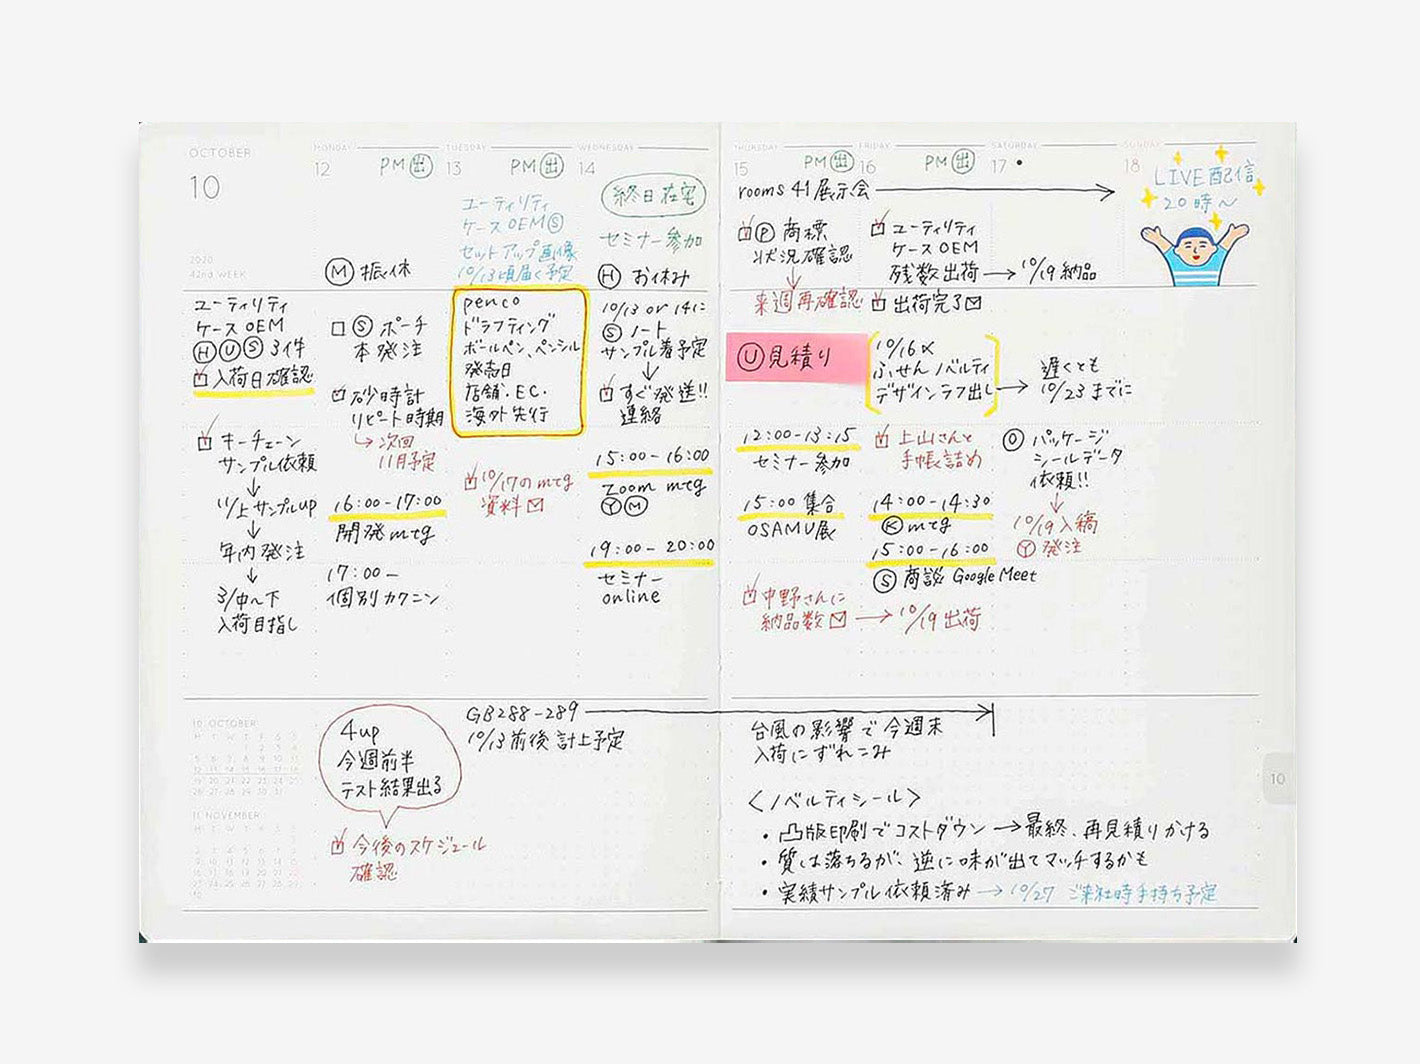 OCTOBER
10
2020
42nd WEEK
ユーティリティ
ケース OEM
Ⓗ Ⓤ Ⓢ 3件
☑ 入荷日確認
☑ キーチェーン
サンプル依頼
↓
11/上 サンプルup
↓
年内発注
↓
3/中〜下
入荷目指し
MONDAY
12
PM 出
Ⓜ 振休
□ Ⓢ ポーチ
本発注
☑ 砂時計
リピート時期
↳ 次回
11月予定
16:00-17:00
開発mtg
17:00-
個別カクニン
TUESDAY
13
PM 出
ユーティリティ
ケース OEM Ⓢ
セットアップ画像
10/13頃届く予定
penco
ドラフティング
ボールペン、ペンシル
発売日
店舗・EC・
海外先行
☑ 10/17のmtg
資料 ✉
WEDNESDAY
14
終日在宅
セミナー参加
Ⓗ お休み
10/13 or 14に
Ⓢ ノート
サンプル着予定
↓
☑ すぐ発送!!
連絡
15:00-16:00
Zoom mtg
Ⓨ Ⓜ
19:00-20:00
セミナー
online
THURSDAY
15
PM 出
rooms 41 展示会 →
☑ Ⓟ 商標
状況確認
↓
来週再確認
Ⓤ 見積り
12:00-13:15
セミナー参加
15:00 集合
OSAMU展
☑ 中野さんに
納品数 ✉ → 10/19 出荷
FRIDAY
16
PM 出
☑ ユーティリティ
ケース OEM
残数出荷 → 10/19 納品
☑ 出荷完了 ✉
10/16 〆
ふせんノベルティ
デザインラフ出し →
☑ 上山さんと
手帳詰め
14:00-14:30
Ⓚ mtg
15:00-16:00
Ⓢ 商談 Google Meet
SATURDAY
17 •
遅くとも
10/23までに
Ⓞ パッケージ
シールデータ
依頼!!
↓
10/19 入稿
Ⓨ 発注
SUNDAY
18
LIVE配信
20時〜
10 OCTOBER
11 NOVEMBER
4up
今週前半
テスト結果出る
☑ 今後のスケジュール
確認
GB288-289 →
10/13前後 計上予定
台風の影響で今週末
入荷にずれこみ
〈ノベルティシール〉
・凸版印刷でコストダウン → 最終、再見積りかける
・質は落ちるが、逆に味が出てマッチするかも
・実績サンプル依頼済み → 10/27 ご来社時手持ち予定
10